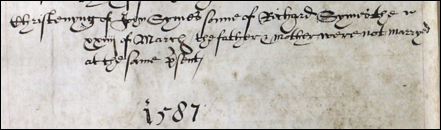 Christenyng of John Symes sonne of Richard Symes the
xxiii of March the father & mother were not marryed
at the same p'sent
1587